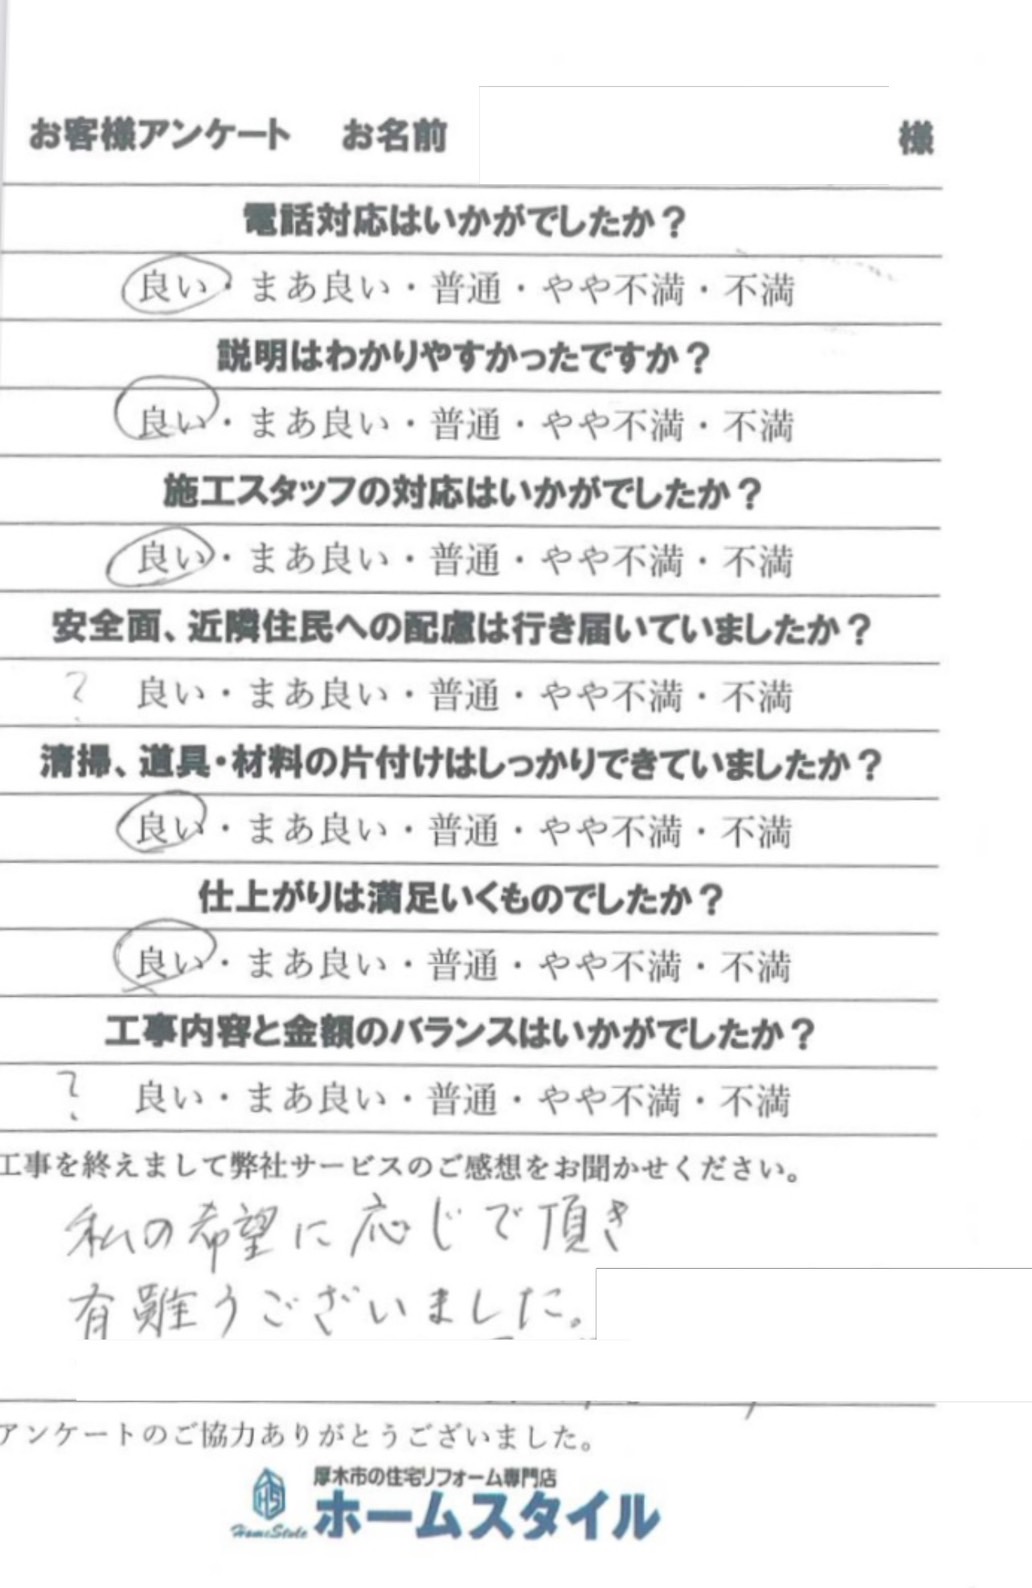 お客様アンケート お名前 様
電話対応はいかがでしたか？
良い・まあ良い・普通・やや不満・不満
説明はわかりやすかったですか？
良い・まあ良い・普通・やや不満・不満
施工スタッフの対応はいかがでしたか？
良い・まあ良い・普通・やや不満・不満
安全面、近隣住民への配慮は行き届いていましたか？
? 良い・まあ良い・普通・やや不満・不満
清掃、道具・材料の片付けはしっかりできていましたか？
良い・まあ良い・普通・やや不満・不満
仕上がりは満足いくものでしたか？
良い・まあ良い・普通・やや不満・不満
工事内容と金額のバランスはいかがでしたか？
? 良い・まあ良い・普通・やや不満・不満
工事を終えまして弊社サービスのご感想をお聞かせください。
私の希望に応じで頂き
有難うございました。
アンケートのご協力ありがとうございました。
厚木市の住宅リフォーム専門店
HS HomeStyle ホームスタイル